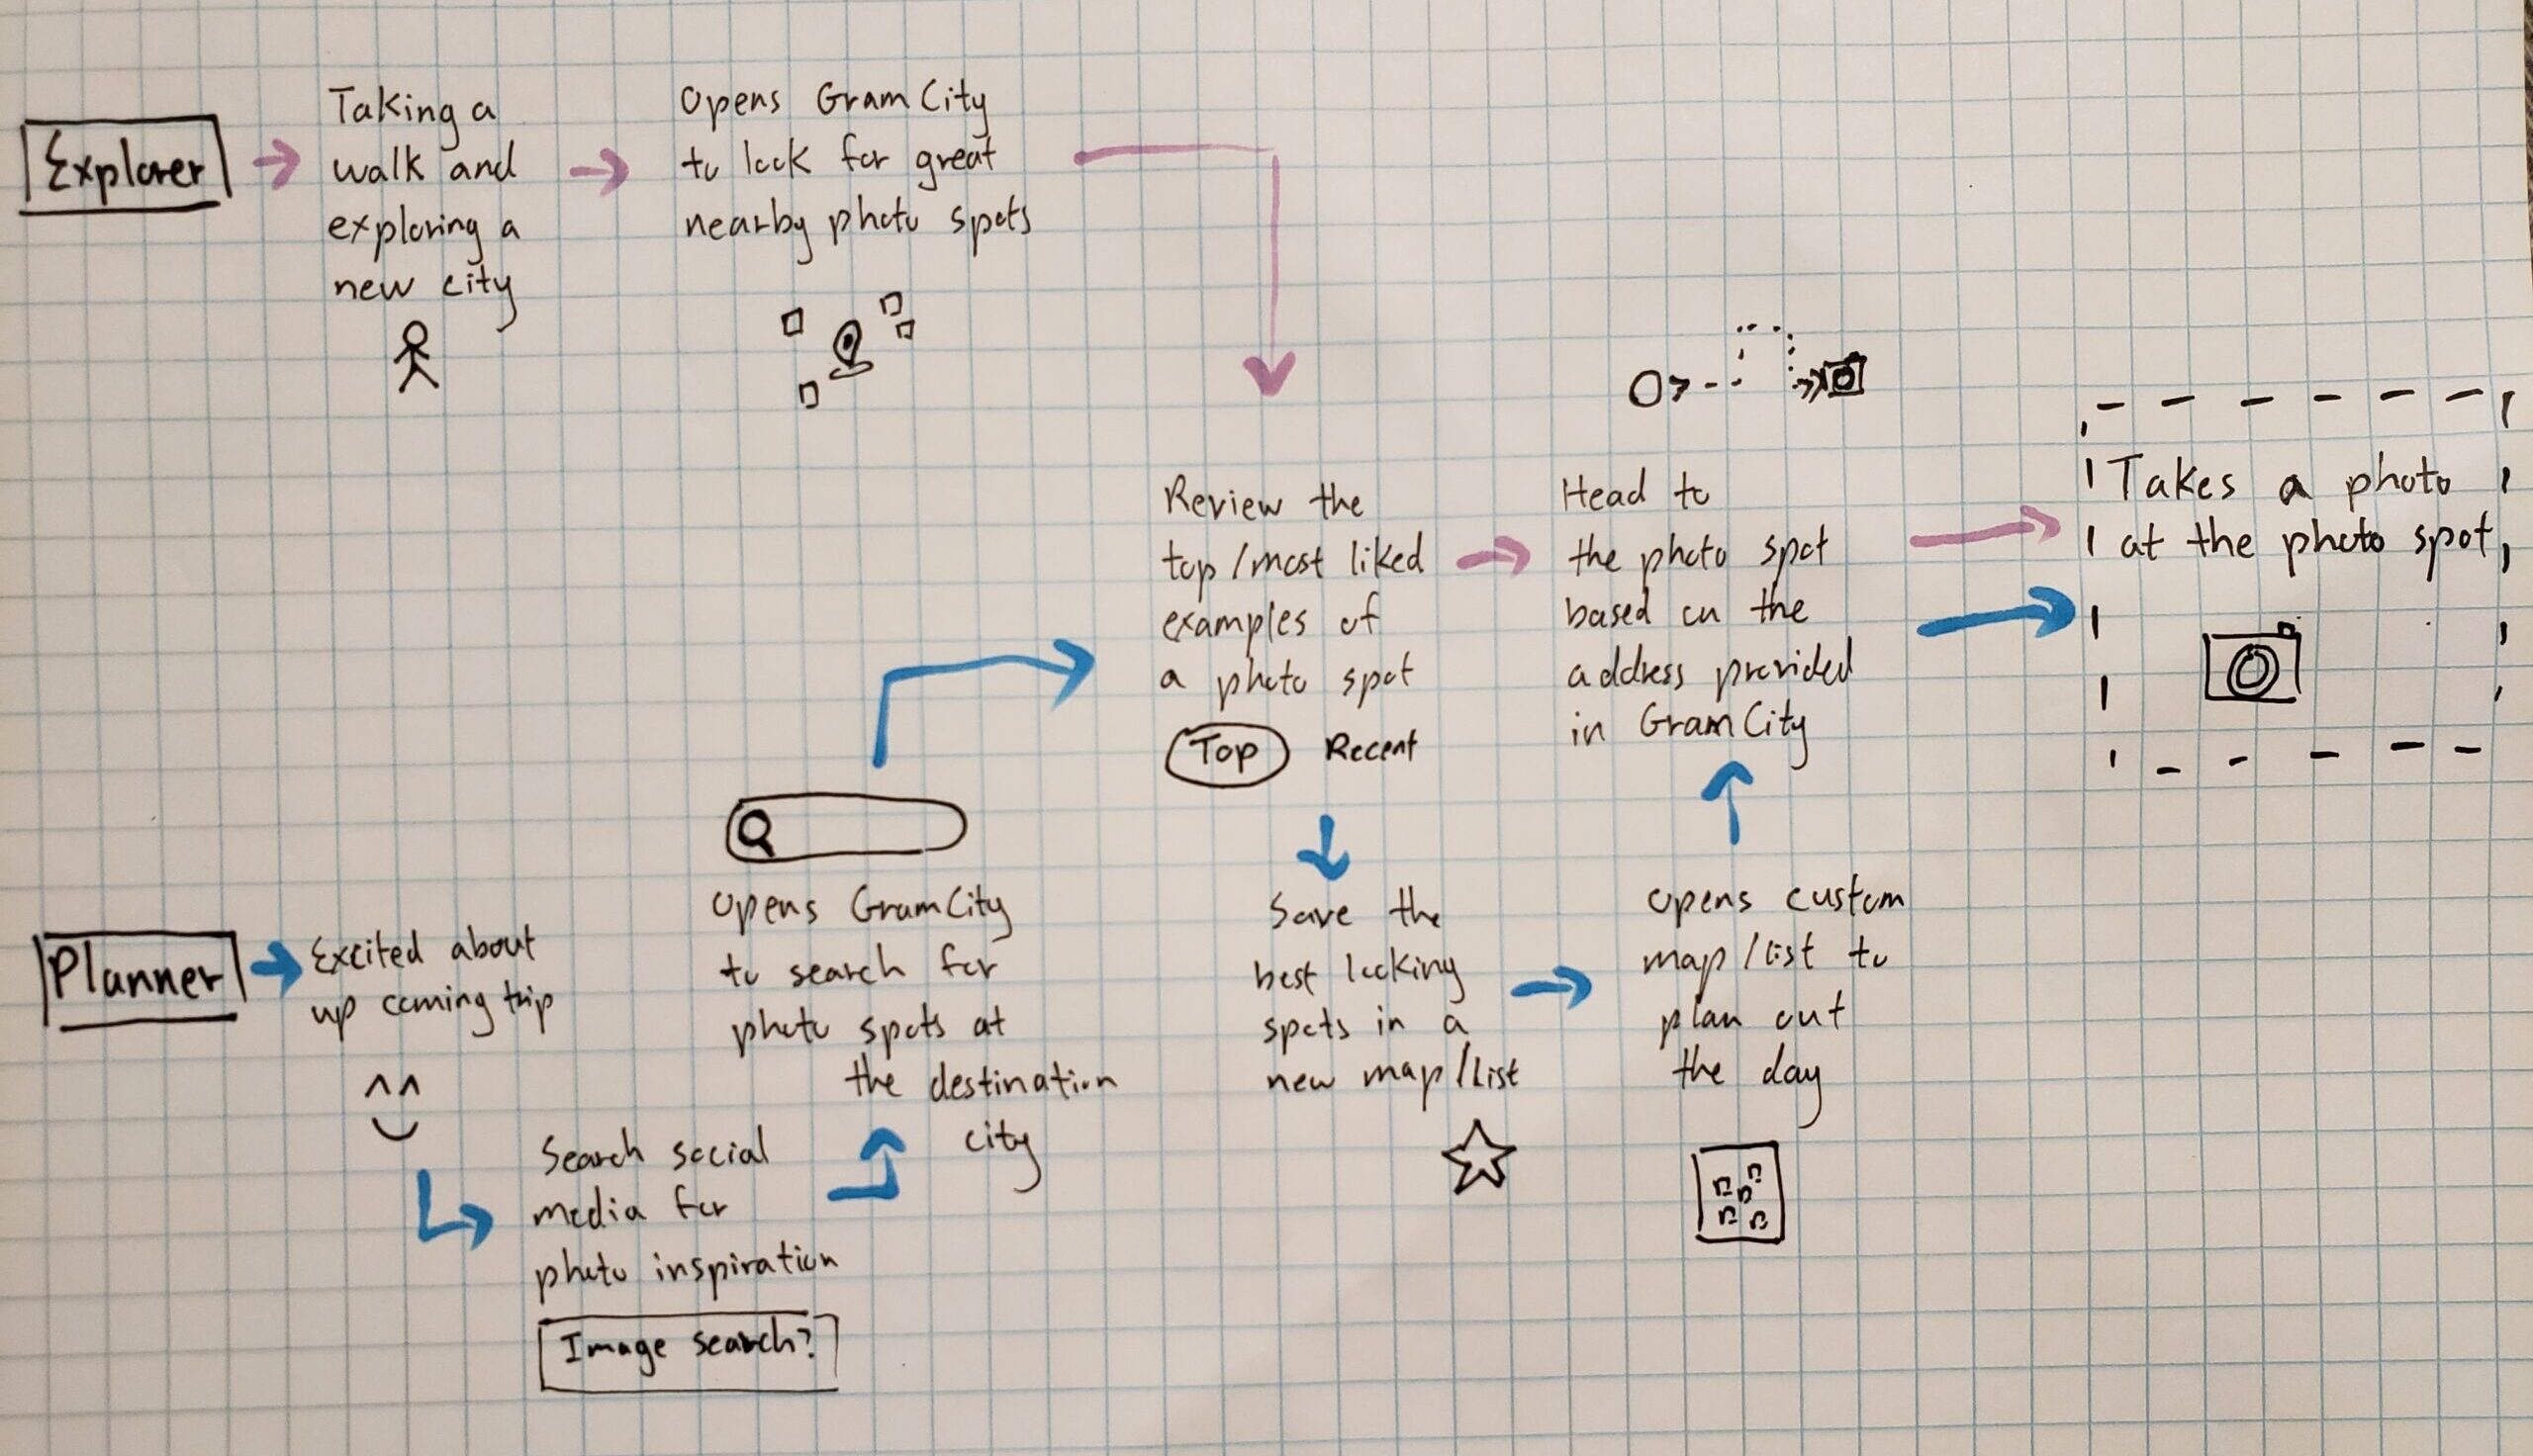 Explorer
Taking a
walk and
exploring a
new city
Opens GramCity
to look for great
nearby photo spots
Review the
top/most liked
examples of
a photo spot
Top Recent
Head to
the photo spot
based on the
address provided
in GramCity
Takes a photo
at the photo spot
Planner
Excited about
up coming trip
Search social
media for
photo inspiration
Image search?
Opens GramCity
to search for
photo spots at
the destination
city
Save the
best looking
spots in a
new map/list
Opens custom
map/list to
plan out
the day